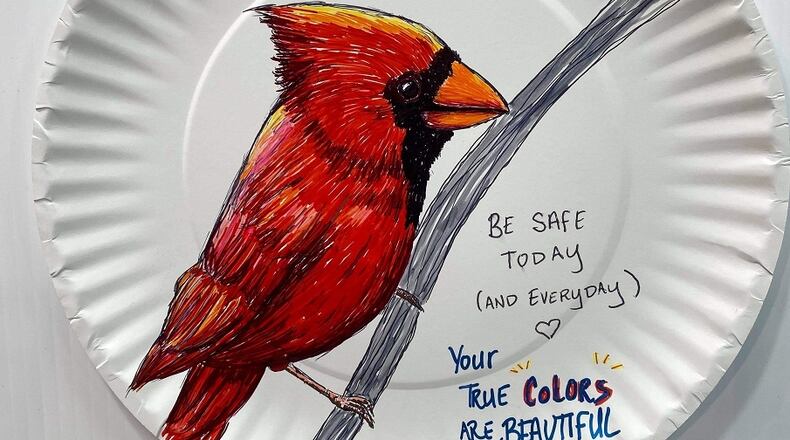 BE SAFE
TODAY
(AND EVERYDAY)
YOUR
TRUE COLORS
ARE BEAUTIFUL